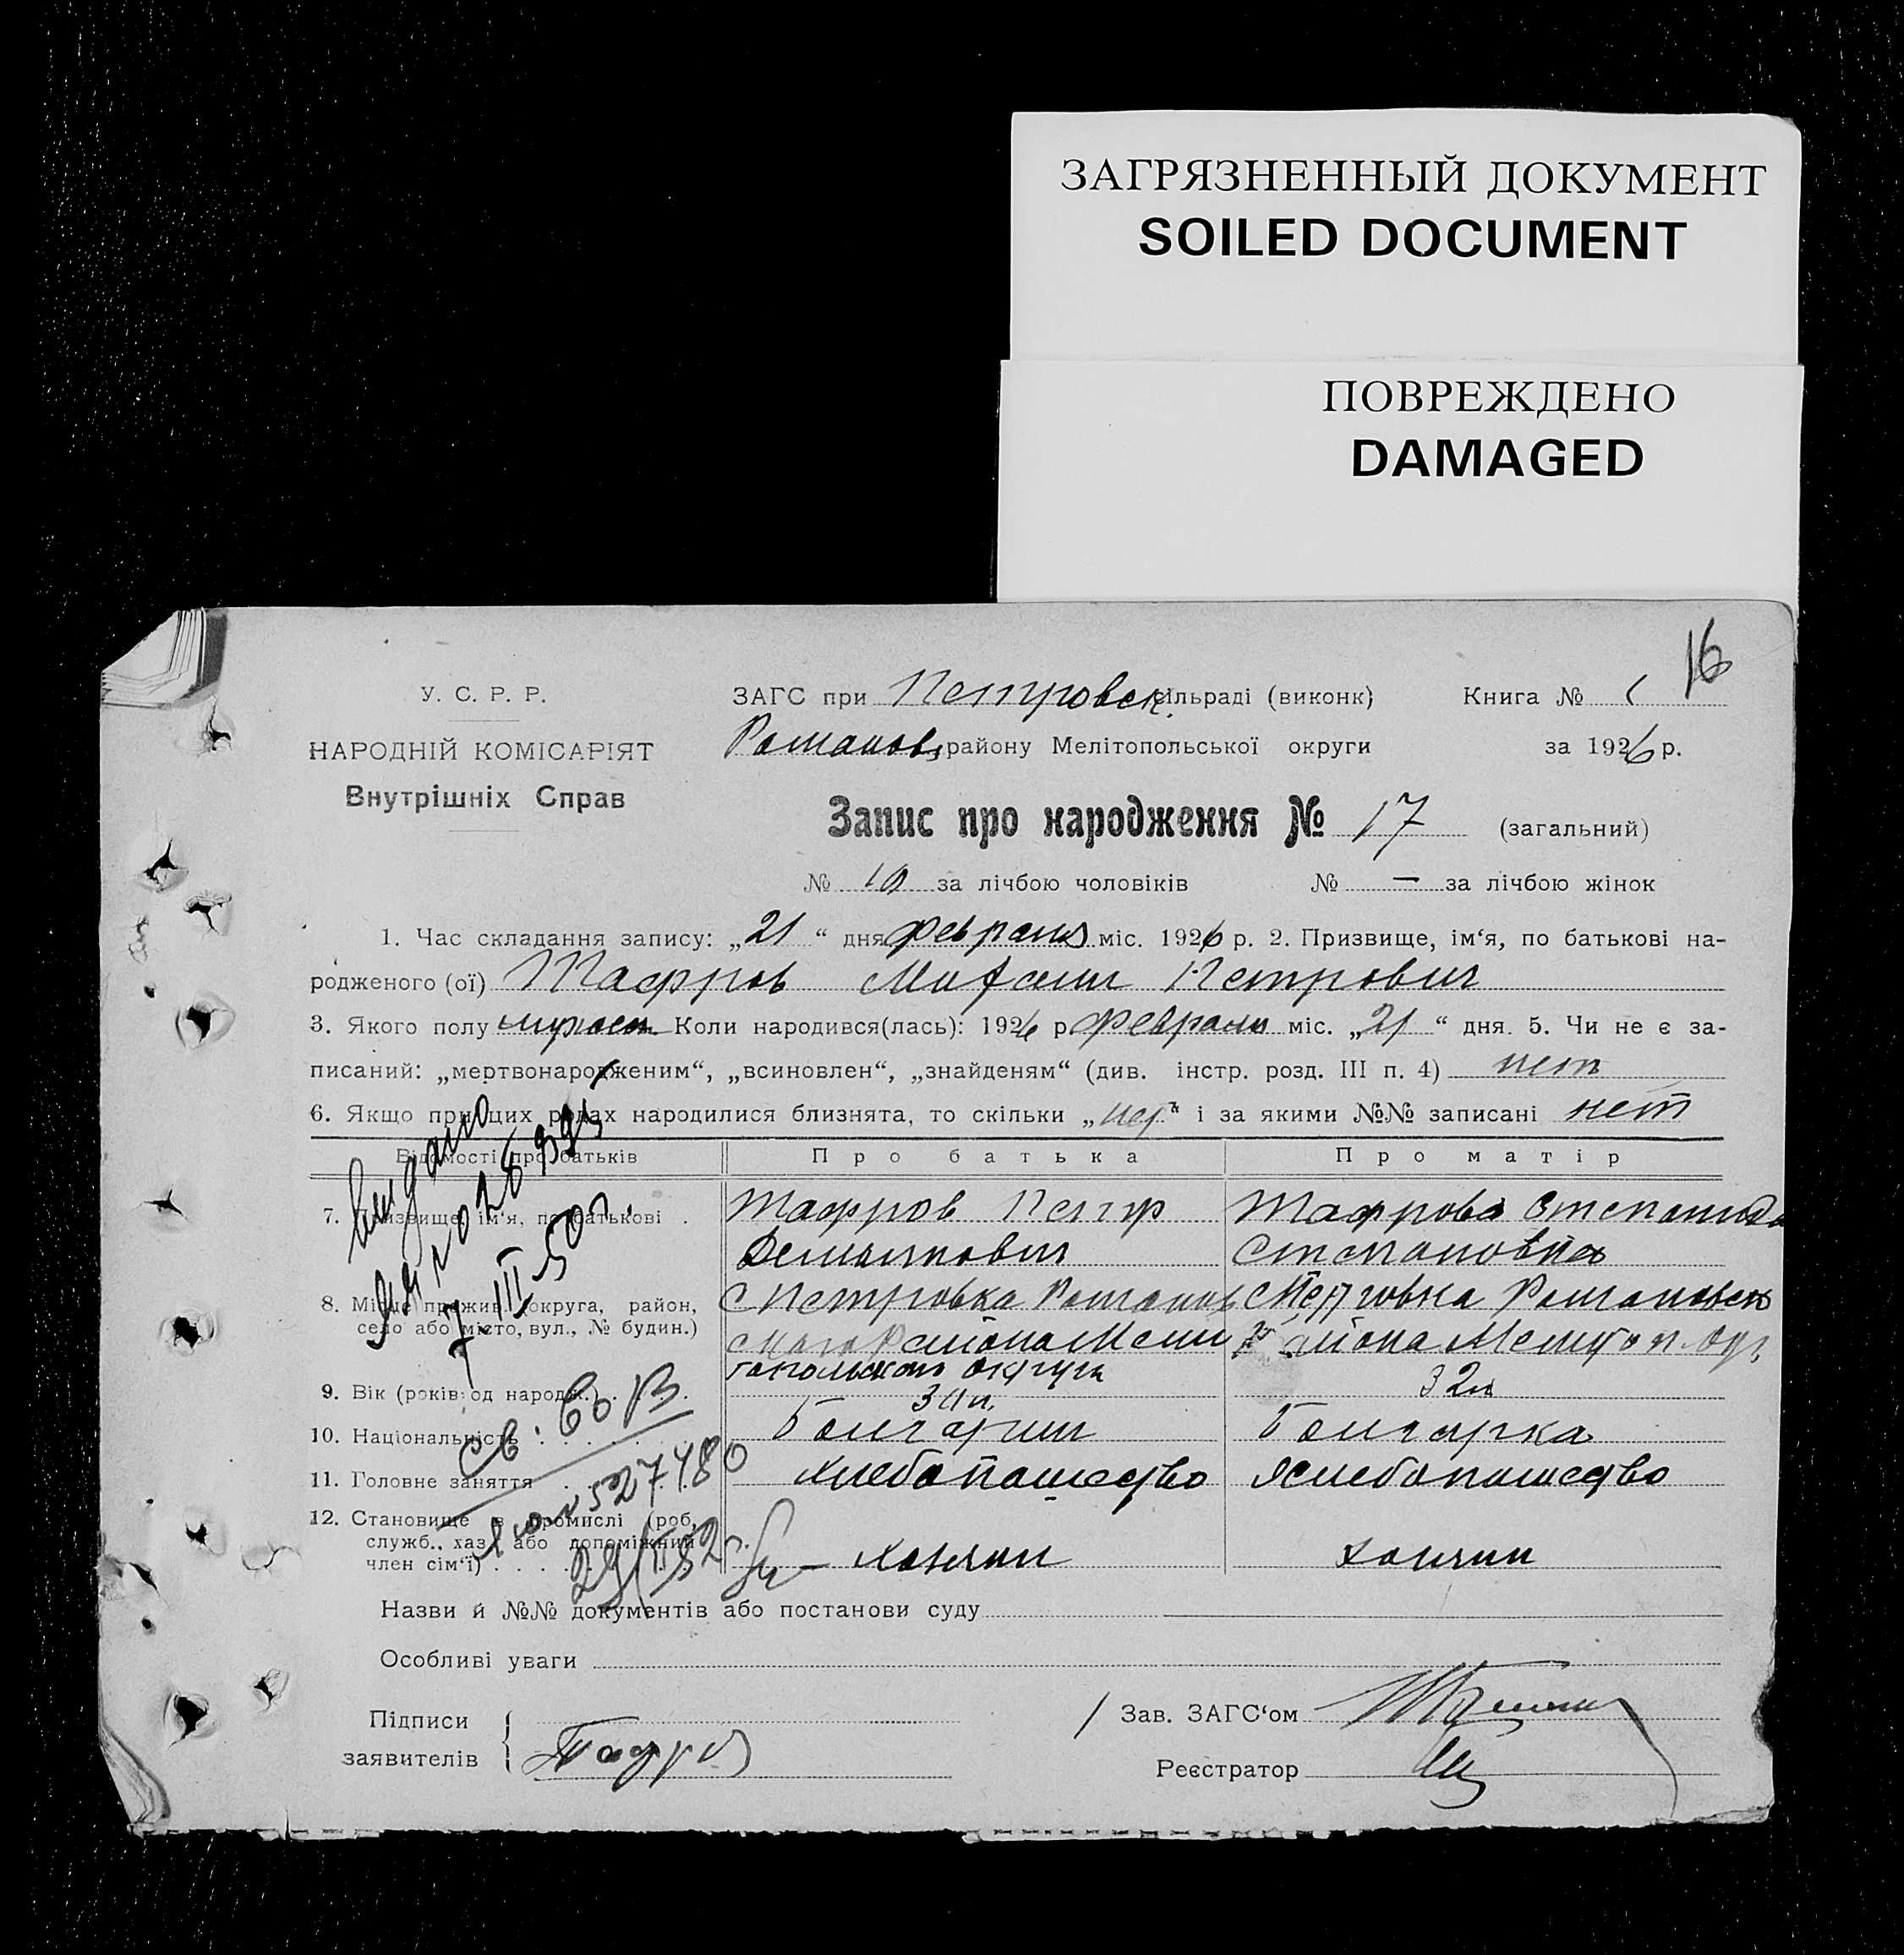 ЗАГРЯЗНЕННЫЙ ДОКУМЕНТ
SOILED DOCUMENT
ПОВРЕЖДЕНО
DAMAGED
16
У. С. Р. Р.
НАРОДНІЙ КОМІСАРІЯТ
Внутрішніх Справ
ЗАГС при Петровск. сільраді (виконк) Книга №
Романов району Мелітопольської округи за 1926 р.
Запис про народження № 17 (загальний)
№ 10 за лічбою чоловіків № — за лічбою жінок
1. Час складання запису: „21“ дня февраля міс. 1926 р. 2. Призвище, ім‘я, по батькові на-
родженого (ої) Тафров Михаил Петрович
3. Якого полу мужеск Коли народився(лась): 1926 р февраля міс. „21“ дня. 5. Чи не є за-
писаний: „мертвонародженим“, „всиновлен“, „знайденям“ (див. інстр. розд. III п. 4) нет
6. Якщо при цих родах народилися близнята, то скільки „нет“ і за якими №№ записані нет
Відомості про батьків Про батька Про матір
7. Призвище, ім‘я, по батькові . Тафров Петр Тафрова Степанида
Степановна
8. Місце прожив. (округа, район, с Петровка Романов с Петровка Романовск
село або місто, вул., № будин.) района Мели района Мелитоп. окр,
топольского округа
9. Вік (років од народж.) . . . 32
10. Національність . . . Болгарин Болгарка
11. Головне заняття . . . хлебопашество хлебопашество
12. Становище в промислі (роб,
служб., хаз. або допоміжний
член сім‘ї) . . . хозяин хозяин
Выдано
7 III 50г.
св. 527480
Назви й №№ документів або постанови суду
Особливі уваги
Підписи Зав. ЗАГС‘ом
заявителів Тафров Реєстратор